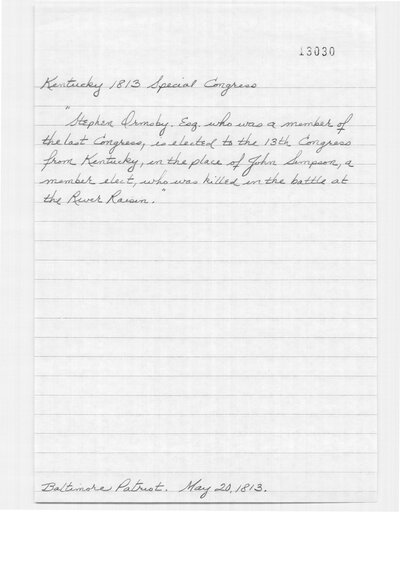 13030
Kentucky 1813 Special Congress
"Stephen Ormsby. Esq. who was a member of
the last Congress, is elected to the 13th Congress
from Kentucky, in the place of John Simpson, a
member elect, who was killed in the battle at
the River Raisin."
Baltimore Patriot. May 20, 1813.